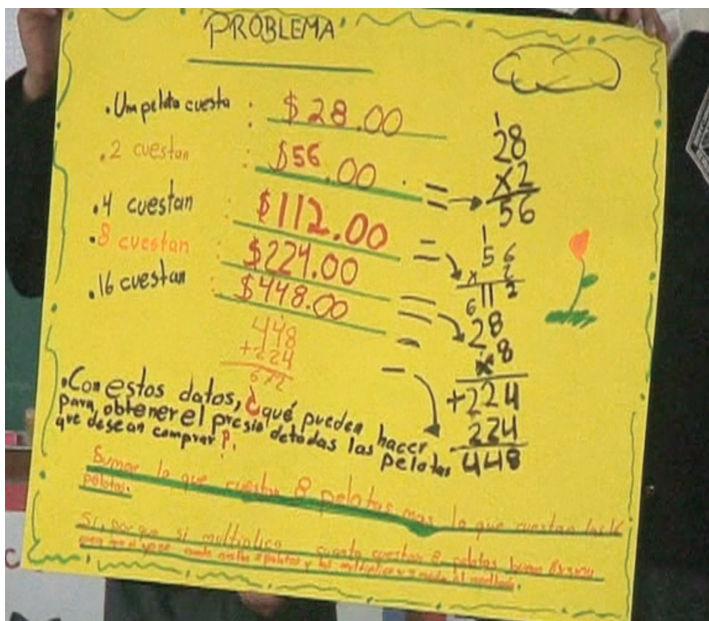 PROBLEMA
.Una pelota cuesta : $28.00
.2 cuestan : $56.00 = →
.4 cuestan : $112.00 =
.8 cuestan : $224.00 =
.16 cuestan : $448.00 -
1
28
x2
56
1
56
x 2
112
28
x8
+224
224
448
448
+224
672
.Con estos datos, ¿qué pueden hacer
para obtener el presio de todas las pelotas
que desean comprar?.
Sumar lo que cuestan 8 pelotas mas lo que cuestan las 16
pelotas.
Si, por que si multiplico cuanto cuestan 8 pelotas